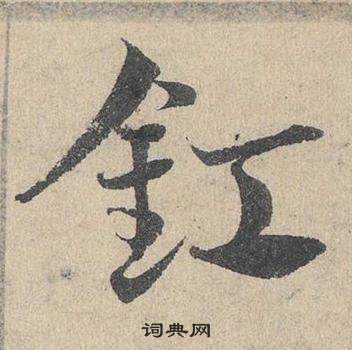 釭
词典网